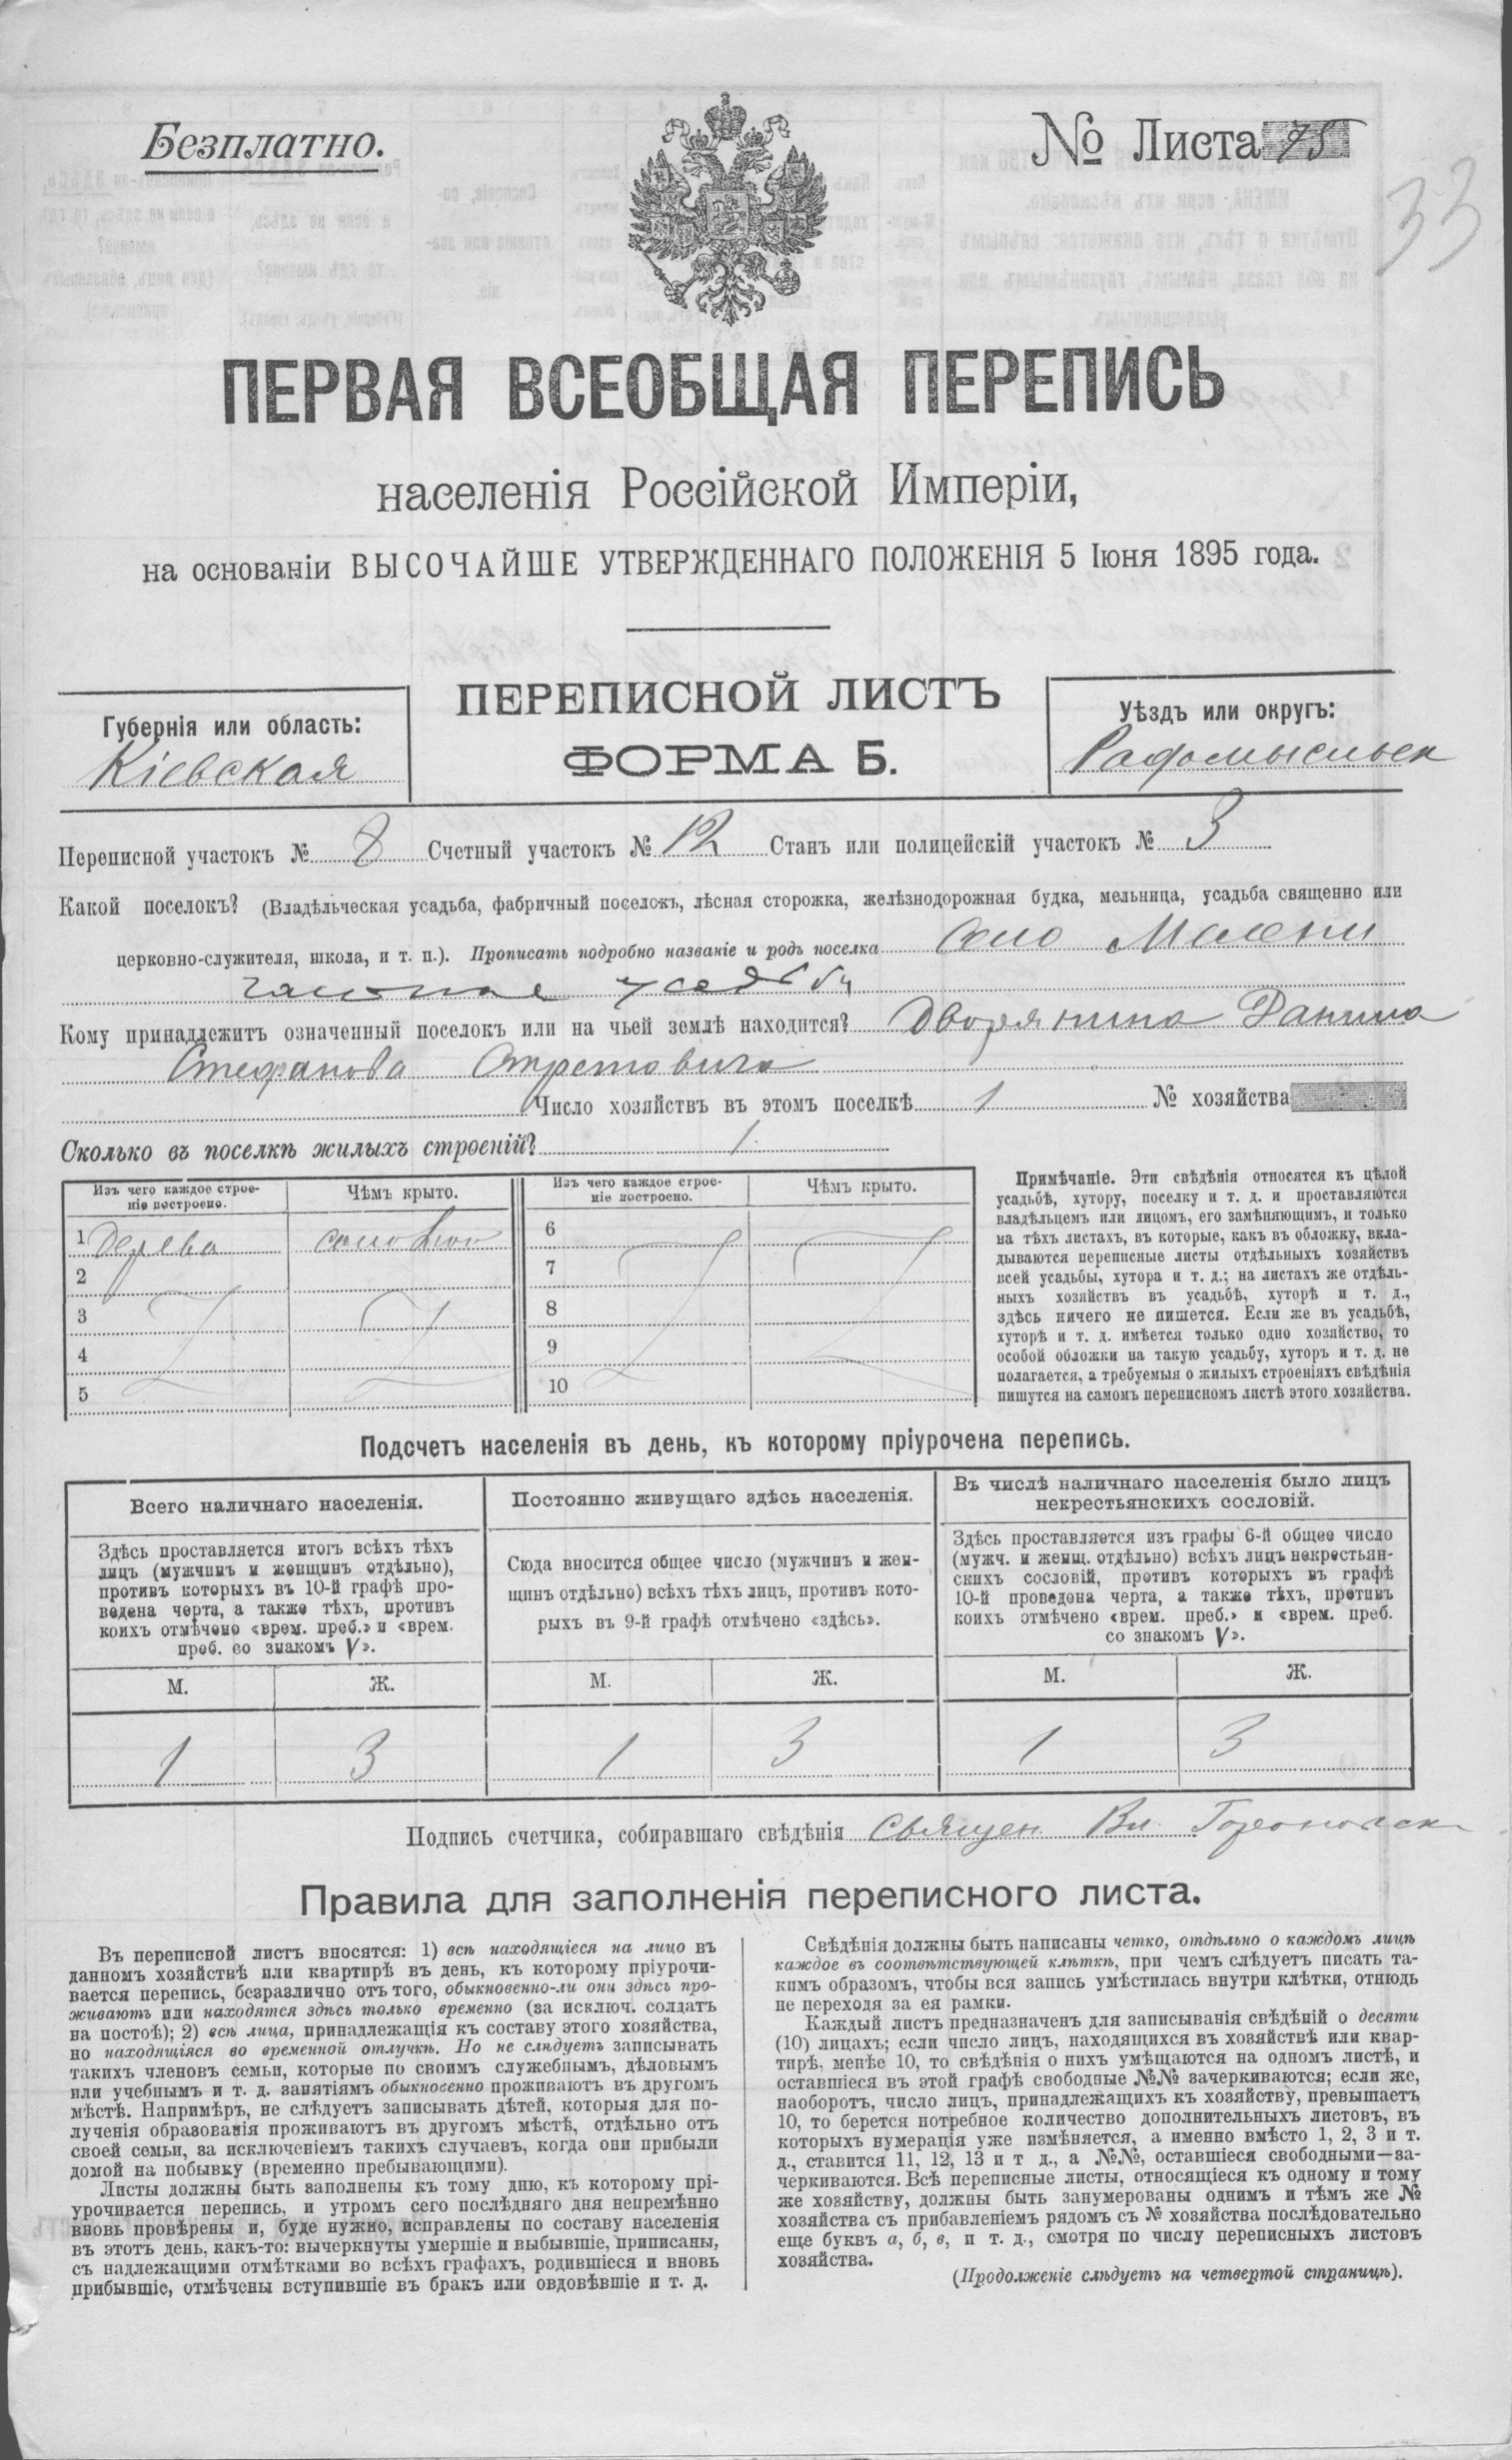 Безплатно.
№ Листа 75
33
ПЕРВАЯ ВСЕОБЩАЯ ПЕРЕПИСЬ
населенія Россійской Имперіи,
на основаніи ВЫСОЧАЙШЕ УТВЕРЖДЕННАГО ПОЛОЖЕНІЯ 5 Іюня 1895 года.
Губернія или область:
Кіевская
ПЕРЕПИСНОЙ ЛИСТЪ
ФОРМА Б.
Уѣздъ или округъ:
Радомысльск
Переписной участокъ № 8 Счетный участокъ № 12 Станъ или полицейскій участокъ № 3
Какой поселокъ? (Владѣльческая усадьба, фабричный поселокъ, лѣсная сторожка, желѣзнодорожная будка, мельница, усадьба священно или
церковно-служителя, школа, и т. п.). Прописать подробно названіе и родъ поселка Село
усадьба
Кому принадлежитъ означенный поселокъ или на чьей землѣ находится? Дворянина Данила
Стефанова
Число хозяйствъ въ этомъ поселкѣ 1 № хозяйства
Сколько въ поселкѣ жилыхъ строеній? 1.
Изъ чего каждое строе-
ніе построено.
Чѣмъ крыто.
Изъ чего каждое строе-
ніе построено.
Чѣмъ крыто.
1 Дерева соломою
2
3
4
5
6
7
8
9
10
Примѣчаніе. Эти свѣдѣнія относятся къ цѣлой
усадьбѣ, хутору, поселку и т. д. и проставляются
владѣльцемъ или лицомъ, его замѣняющимъ, и только
на тѣхъ листахъ, въ которые, какъ въ обложку, вкла-
дываются переписные листы отдѣльныхъ хозяйствъ
всей усадьбы, хутора и т. д.; на листахъ же отдѣль-
ныхъ хозяйствъ въ усадьбѣ, хуторѣ и т. д.,
здѣсь ничего не пишется. Если же въ усадьбѣ,
хуторѣ и т. д. имѣется только одно хозяйство, то
особой обложки на такую усадьбу, хуторъ и т. д. не
полагается, а требуемыя о жилыхъ строеніяхъ свѣдѣнія
пишутся на самомъ переписномъ листѣ этого хозяйства.
Подсчетъ населенія въ день, къ которому пріурочена перепись.
Всего наличнаго населенія.
Здѣсь проставляется итогъ всѣхъ тѣхъ
лицъ (мужчинъ и женщинъ отдѣльно),
противъ которыхъ въ 10-й графѣ про-
ведена черта, а также тѣхъ, противъ
коихъ отмѣчено «врем. преб.» и «врем.
преб. со знакомъ V».
М. Ж.
1 3
Постоянно живущаго здѣсь населенія.
Сюда вносится общее число (мужчинъ и жен-
щинъ отдѣльно) всѣхъ тѣхъ лицъ, противъ кото-
рыхъ въ 9-й графѣ отмѣчено «здѣсь».
М. Ж.
1 3
Въ числѣ наличнаго населенія было лицъ
некрестьянскихъ сословій.
Здѣсь проставляется изъ графы 6-й общее число
(мужч. и женщ. отдѣльно) всѣхъ лицъ некрестьян-
скихъ сословій, противъ которыхъ въ графѣ
10-й проведена черта, а также тѣхъ, противъ
коихъ отмѣчено «врем. преб.» и «врем. преб.
со знакомъ V».
М. Ж.
1 3
Подпись счетчика, собиравшаго свѣдѣнія Священ. Вл.
Правила для заполненія переписного листа.
Въ переписной листъ вносятся: 1) всѣ находящіеся на лицо въ
данномъ хозяйствѣ или квартирѣ въ день, къ которому пріурочи-
вается перепись, безразлично отъ того, обыкновенно-ли они здѣсь про-
живаютъ или находятся здѣсь только временно (за исключ. солдатъ
на постоѣ); 2) всѣ лица, принадлежащія къ составу этого хозяйства,
но находящіяся во временной отлучкѣ. Но не слѣдуетъ записывать
такихъ членовъ семьи, которые по своимъ служебнымъ, дѣловымъ
или учебнымъ и т. д. занятіямъ обыкновенно проживаютъ въ другомъ
мѣстѣ. Напримѣръ, не слѣдуетъ записывать дѣтей, которыя для по-
лученія образованія проживаютъ въ другомъ мѣстѣ, отдѣльно отъ
своей семьи, за исключеніемъ такихъ случаевъ, когда они прибыли
домой на побывку (временно пребывающими).
Листы должны быть заполнены къ тому дню, къ которому прі-
урочивается перепись, и утромъ сего послѣдняго дня непремѣнно
вновь провѣрены и, буде нужно, исправлены по составу населенія
въ этотъ день, какъ-то: вычеркнуты умершіе и выбывшіе, приписаны,
съ надлежащими отмѣтками во всѣхъ графахъ, родившіеся и вновь
прибывшіе, отмѣчены вступившіе въ бракъ или овдовѣвшіе и т. д.
Свѣдѣнія должны быть написаны четко, отдѣльно о каждомъ лицѣ
каждое въ соотвѣтствующей клѣткѣ, при чемъ слѣдуетъ писать та-
кимъ образомъ, чтобы вся запись умѣстилась внутри клѣтки, отнюдь
не переходя за ея рамки.
Каждый листъ предназначенъ для записыванія свѣдѣній о десяти
(10) лицахъ; если число лицъ, находящихся въ хозяйствѣ или квар-
тирѣ, менѣе 10, то свѣдѣнія о нихъ умѣщаются на одномъ листѣ, и
оставшіеся въ этой графѣ свободные №№ зачеркиваются; если же,
наоборотъ, число лицъ, принадлежащихъ къ хозяйству, превышаетъ
10, то берется потребное количество дополнительныхъ листовъ, въ
которыхъ нумерація уже измѣняется, а именно вмѣсто 1, 2, 3 и т.
д., ставится 11, 12, 13 и т д., а №№, оставшіеся свободными—за-
черкиваются. Всѣ переписные листы, относящіеся къ одному и тому
же хозяйству, должны быть занумерованы однимъ и тѣмъ же №
хозяйства съ прибавленіемъ рядомъ съ № хозяйства послѣдовательно
еще буквъ а, б, в, и т. д., смотря по числу переписныхъ листовъ
хозяйства.
(Продолженіе слѣдуетъ на четвертой страницѣ).